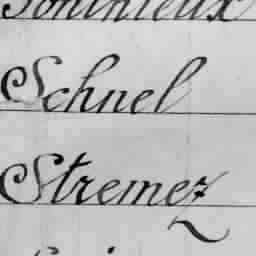 Schnel
Stremez